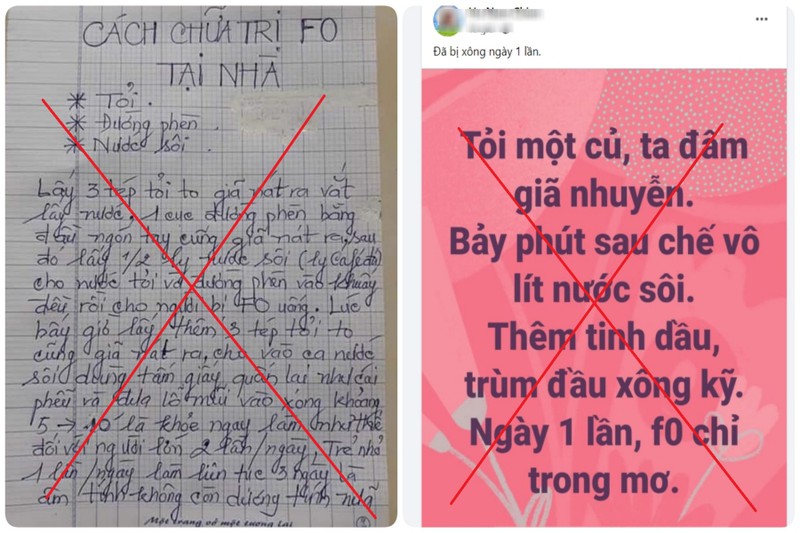 CÁCH CHỮA TRỊ F0
TẠI NHÀ
* Tỏi.
* Đường phèn.
* Nước sôi.
Lấy 3 tép tỏi to giã nát ra vắt
lấy nước. 1 cục đường phèn bằng
đầu ngón tay cũng giã nát ra, sau
đó lấy 1/2 ly nước sôi (ly café đá)
cho nước tỏi và đường phèn vào khuấy
đều rồi cho người bị F0 uống. Lúc
bây giờ lấy thêm 3 tép tỏi to
cũng giã nát ra, cho vào ca nước
sôi dùng tấm giấy quấn lại như cái
phễu và đưa lỗ mũi vào xông khoảng
5 → 10 là khỏe ngay làm như thế
đối với người lớn 2 lần/ngày, Trẻ nhỏ
1 lần/ngày làm liên tục 3 ngày là
âm tính không còn dương tính nữa
Một trang vở một tương lai
Đã bị xông ngày 1 lần.
Tỏi một củ, ta đâm
giã nhuyễn.
Bảy phút sau chế vô
lít nước sôi.
Thêm tinh dầu,
trùm đầu xông kỹ.
Ngày 1 lần, f0 chỉ
trong mơ.